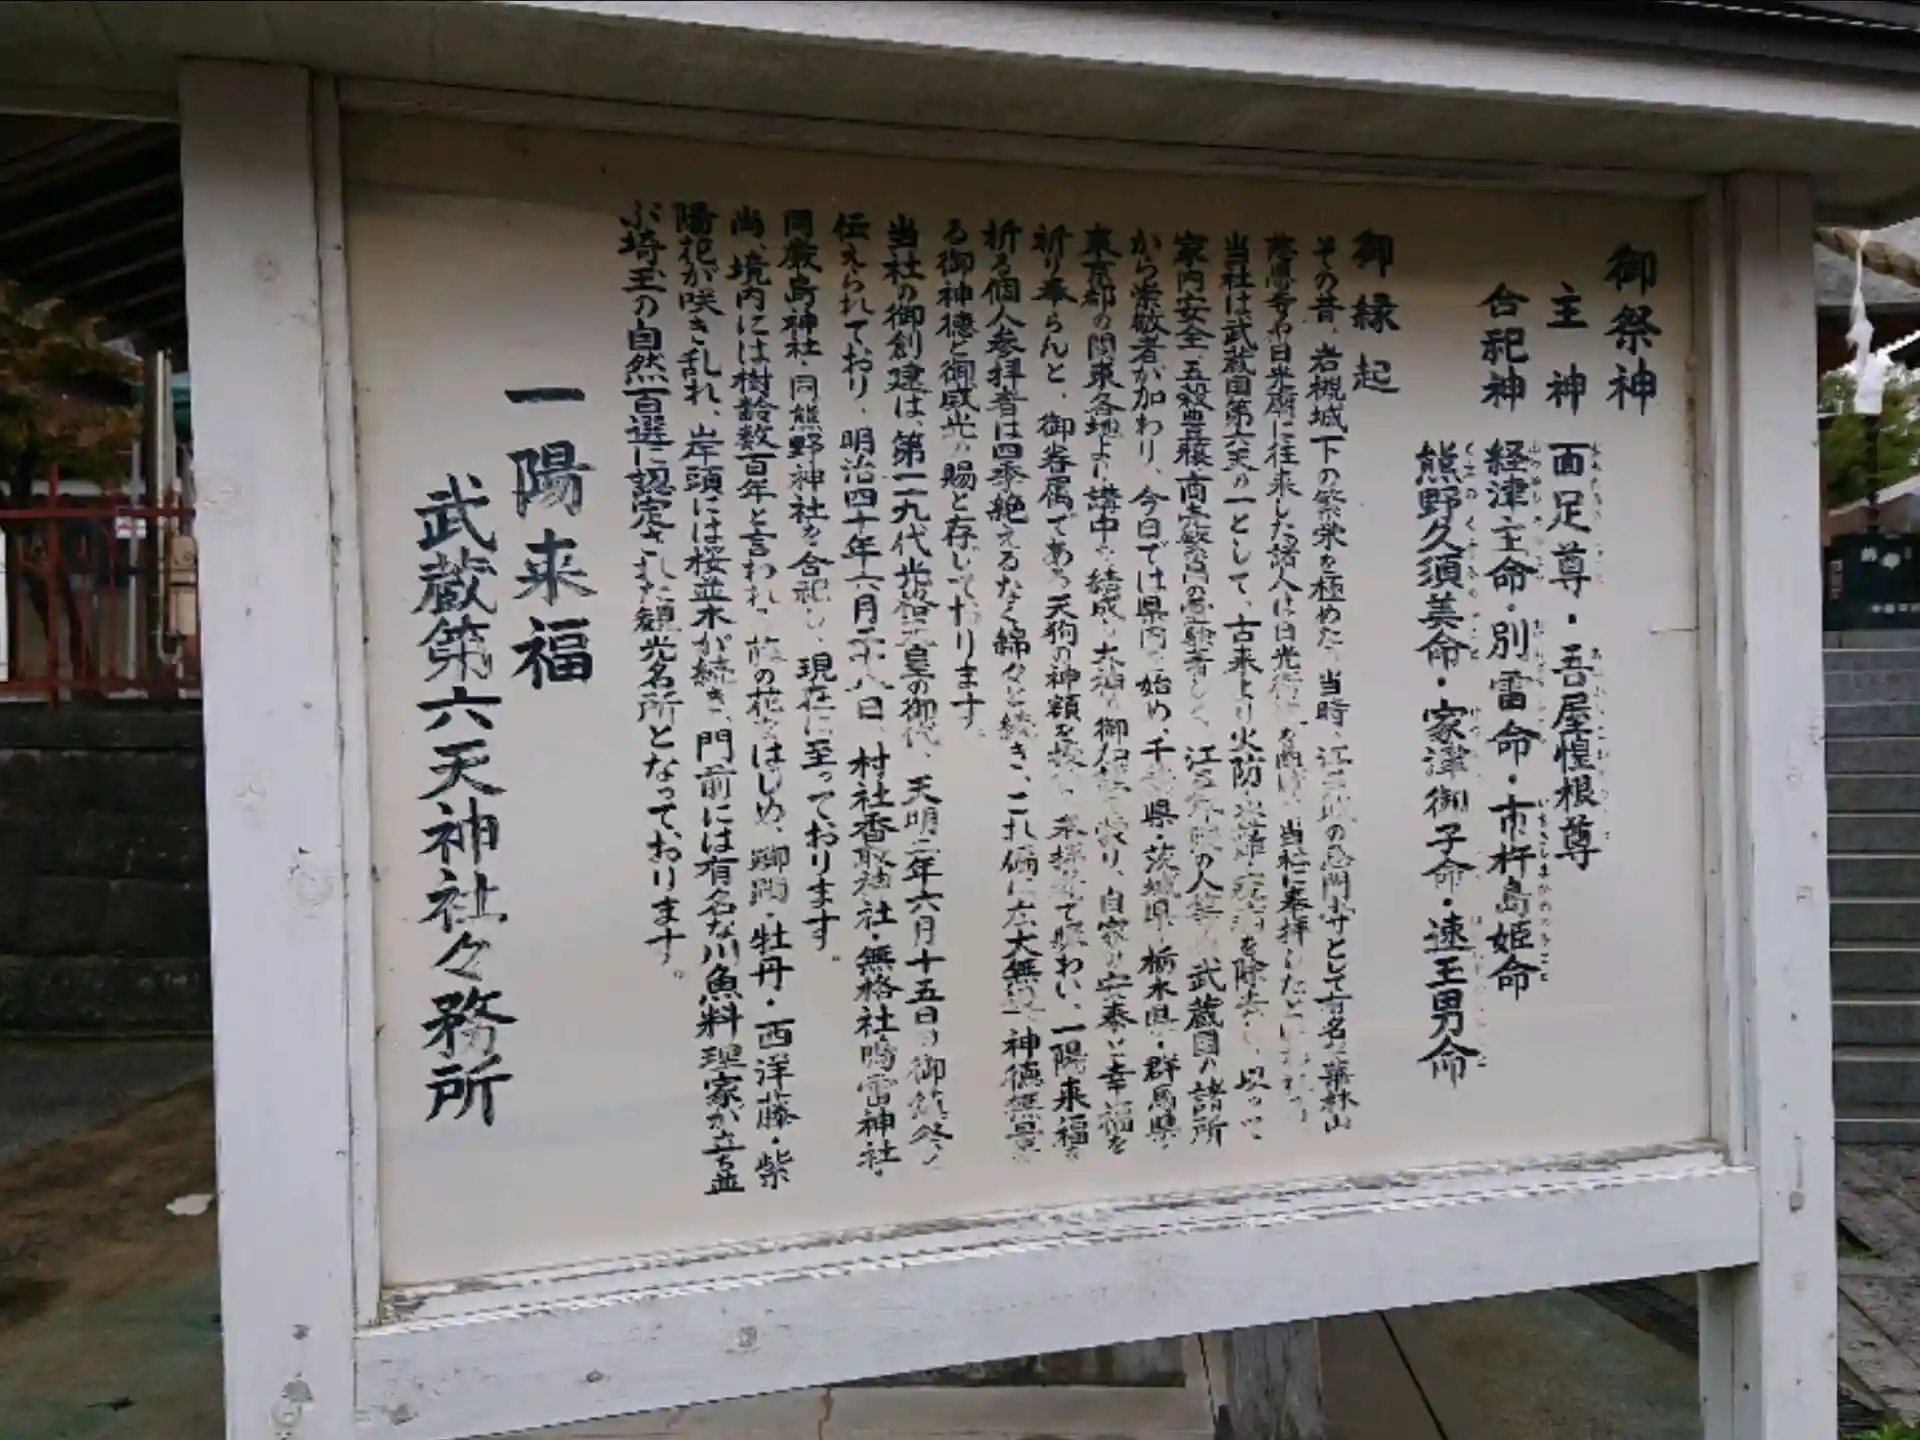 御祭神
主神 面足尊・吾屋惶根尊
合祀神 経津主命・別雷命・市杵島姫命
熊野久須美命・家津御子命・速玉男命
御縁起
その昔、岩槻城下の繁栄を極めた当時、江戸城の鬼門守として有名な華林山
慈恩寺や日光廟に往来した諸人は日光街道を 当社に奉拝したと
当社は武蔵国第六天の一として、古来より火防・盗難・ を除去し、
家内安全・五穀豊穣・商売繁昌の 江戸 の人 武蔵国の諸所
から崇敬者が加わり、今日では県内を始め、千葉県・茨城県・栃木県・群馬県・
東京都の関東各地より講中を結成し大神の御 り、自家の安泰と幸福を
祈り奉らんと、御眷属である天狗の神額を 参拝 て賑わい、一陽来福を
祈る個人参拝者は四季絶えるなく綿々と続き、これ偏に広大無辺 神徳無
る御神徳と御威光の賜と存じております。
当社の御創建は、第一一九代光格天皇の御代、天明二年六月十五日の御鎮祭と
伝えられており、明治四十年六月二十八日、村社香取神社・無格社鳴雷神社・
同厳島神社・同熊野神社を合祀し、現在に至っております。
尚、境内には樹齢数百年と言われる藤の花をはじめ、躑躅・牡丹・西洋藤・紫
陽花が咲き乱れ、岸頭には桜並木が続き、門前には有名な川魚料理家が立ち並
ぶ埼玉の自然百選に認定された観光名所となっております。
一陽来福
武蔵第六天神社々務所